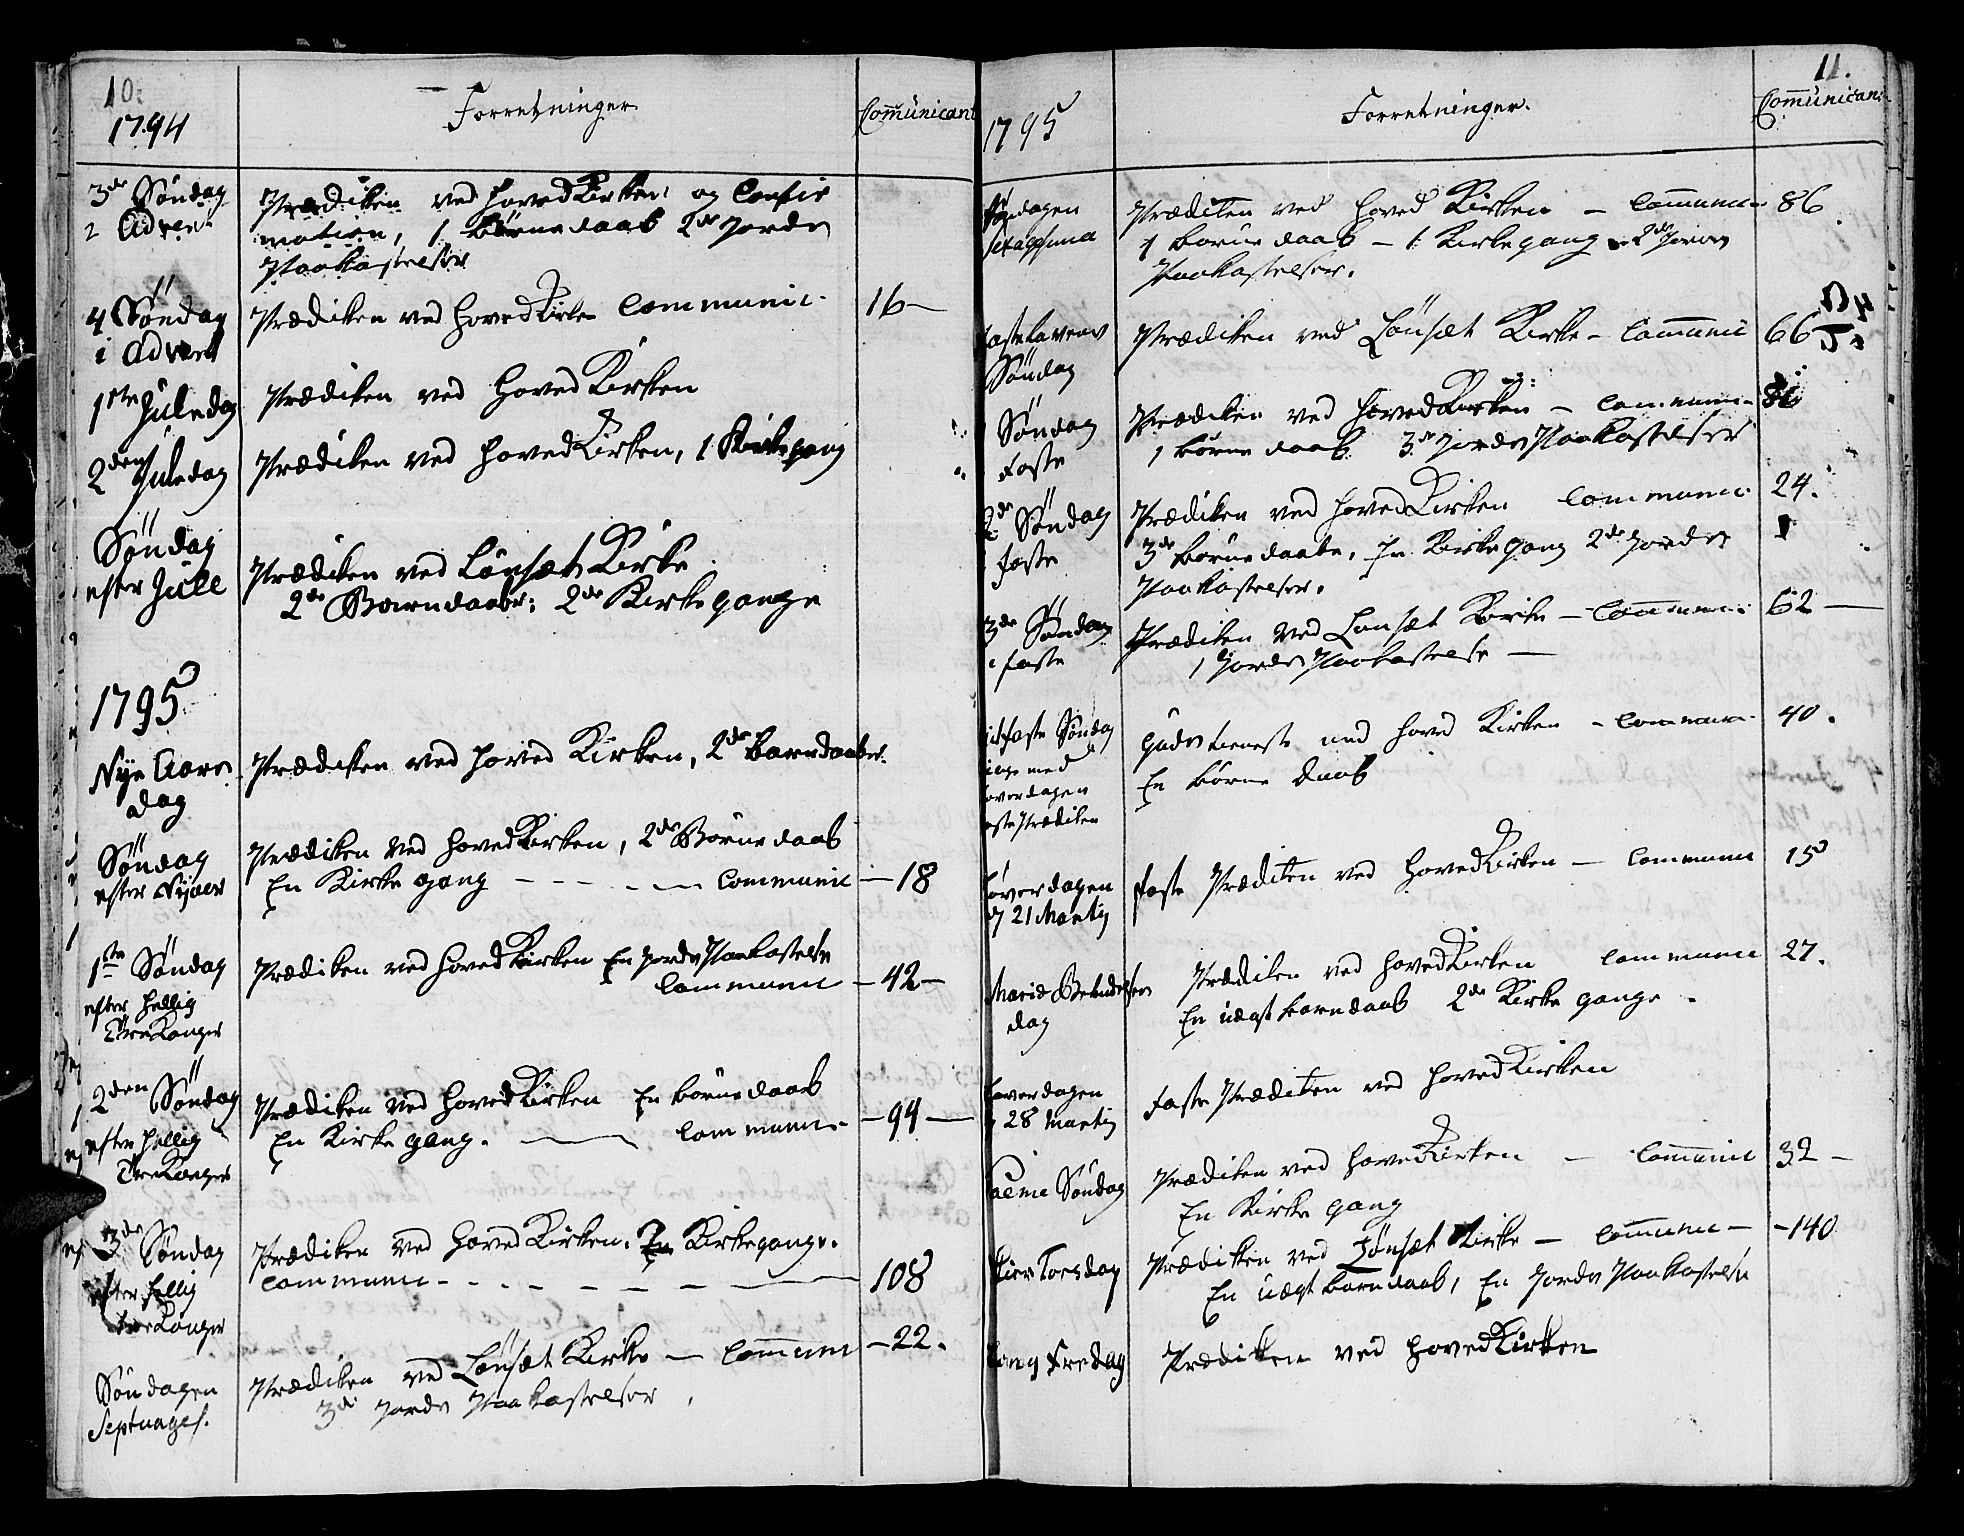 10.
1794
Forretninger.
Com̄unicant
3de Søndag
i Advent
Prædiken ved HovedKirken og Confir
mation, 1 Børne daab 2de Jords
Paakastelser
4 Søndag
i Advent
Prædiken ved HovedKirken Communic.
16 —
1ste Juledag
Prædiken ved HovedKirken
2den Juledag
Prædiken ved HovedKirken, 1 Kirkegang
Søndag
efter Juel
Prædiken ved Lønset Kirke
2de Barndaaber: 2de Kirkegange
1795
Nye Aars
dag
Prædiken ved Hoved Kirken, 2de Barndaaber.
Søndag
efter Nyaar
Prædiken ved HovedKirken, 2de Børne daab
En Kirke gang — — — — communic
— 18
1ste Søndag
efter Hellig
Tre Konger
Prædiken ved HovedKirken En Jords Paakastelse
Communic
— 42 —
2den Søndag
efter Hellig
Tre Konger
Prædiken ved HovedKirken En børne daab
En Kirke gang. — communic.
— 94 —
3de Søndag
efter Hellig
Tre Konger
Prædiken ved HovedKirken. En Kirkegange.
Communic — — — — —
108
Søndagen
Septuages.
Prædiken ved Lønset Kirke — Com̄unic
3de Jords Paakastelser
— 22.
11.
1795
Forretninger.
Com̄unicant
Søndagen
Sexagesima
Prædiken ved Hoved Kirken — Com̄unic
1 børne daab — 1 Kirkegang 2de Jords
Paakastelser.
86
Fastelavens
Søndag
Prædiken ved Lønset Kirke — Com̄unic
66
Søndag
Faste
Prædiken ved HovedKirken — Communic
1 børne daab 3de Jords Paakastelser
2de Søndag
Faste
Prædiken ved HovedKirken Communic.
3de børne daabe, En Kirkegang 2de Jords
Paakastelser.
24.
3de Søndag
i Faste
Prædiken ved Lønset Kirke — Com̄unic:
1 Jords Paakastelse —
62 —
Midfaste Søndag
Gudstieneste ved Hoved Kirken — Communic.
En børne daab
40.
Løverdagen
d 21 Martij
Faste Prædiken ved HovedKirken — Communic
15
Mariæ Bebudelses
dag
Prædiken ved HovedKirken Communic
En uægt barndaab 2de Kirke gange —
27.
Løverdagen
28 Martij
Faste Prædiken ved HovedKirken
Palme Søndag
Prædiken ved HovedKirken — Com̄unic
En Kirke gang
32 —
Skier Torsdag
Prædiken ved Lønset Kirke — Com̄unic —
En uægt barndaab, En Jords Paakastelse
— 140
Lang Fredag
Prædiken ved HovedKirken